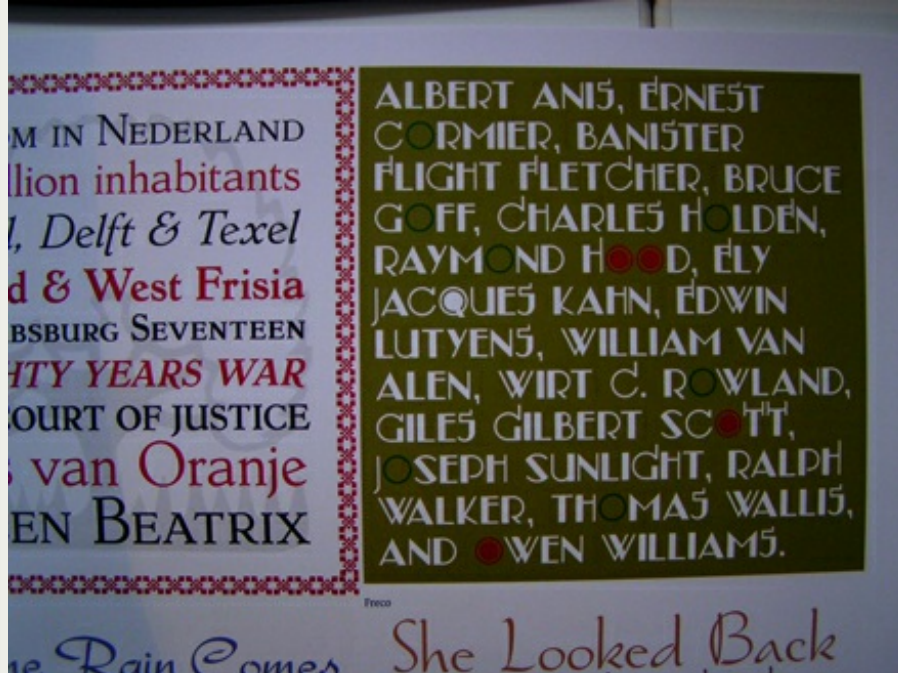 OM IN NEDERLAND
llion inhabitants
l, Delft & Texel
d & West Frisia
BSBURG SEVENTEEN
HTY YEARS WAR
COURT OF JUSTICE
s van Oranje
EN BEATRIX
ALBERT ANIS, ERNEST
CORMIER, BANISTER
FLIGHT FLETCHER, BRUCE
GOFF, CHARLES HOLDEN,
RAYMOND HOOD, ELY
JACQUES KAHN, EDWIN
LUTYENS, WILLIAM VAN
ALEN, WIRT C. ROWLAND,
GILES GILBERT SCOTT,
JOSEPH SUNLIGHT, RALPH
WALKER, THOMAS WALLIS,
AND OWEN WILLIAMS.
Freco
he Rain Comes
She Looked Back